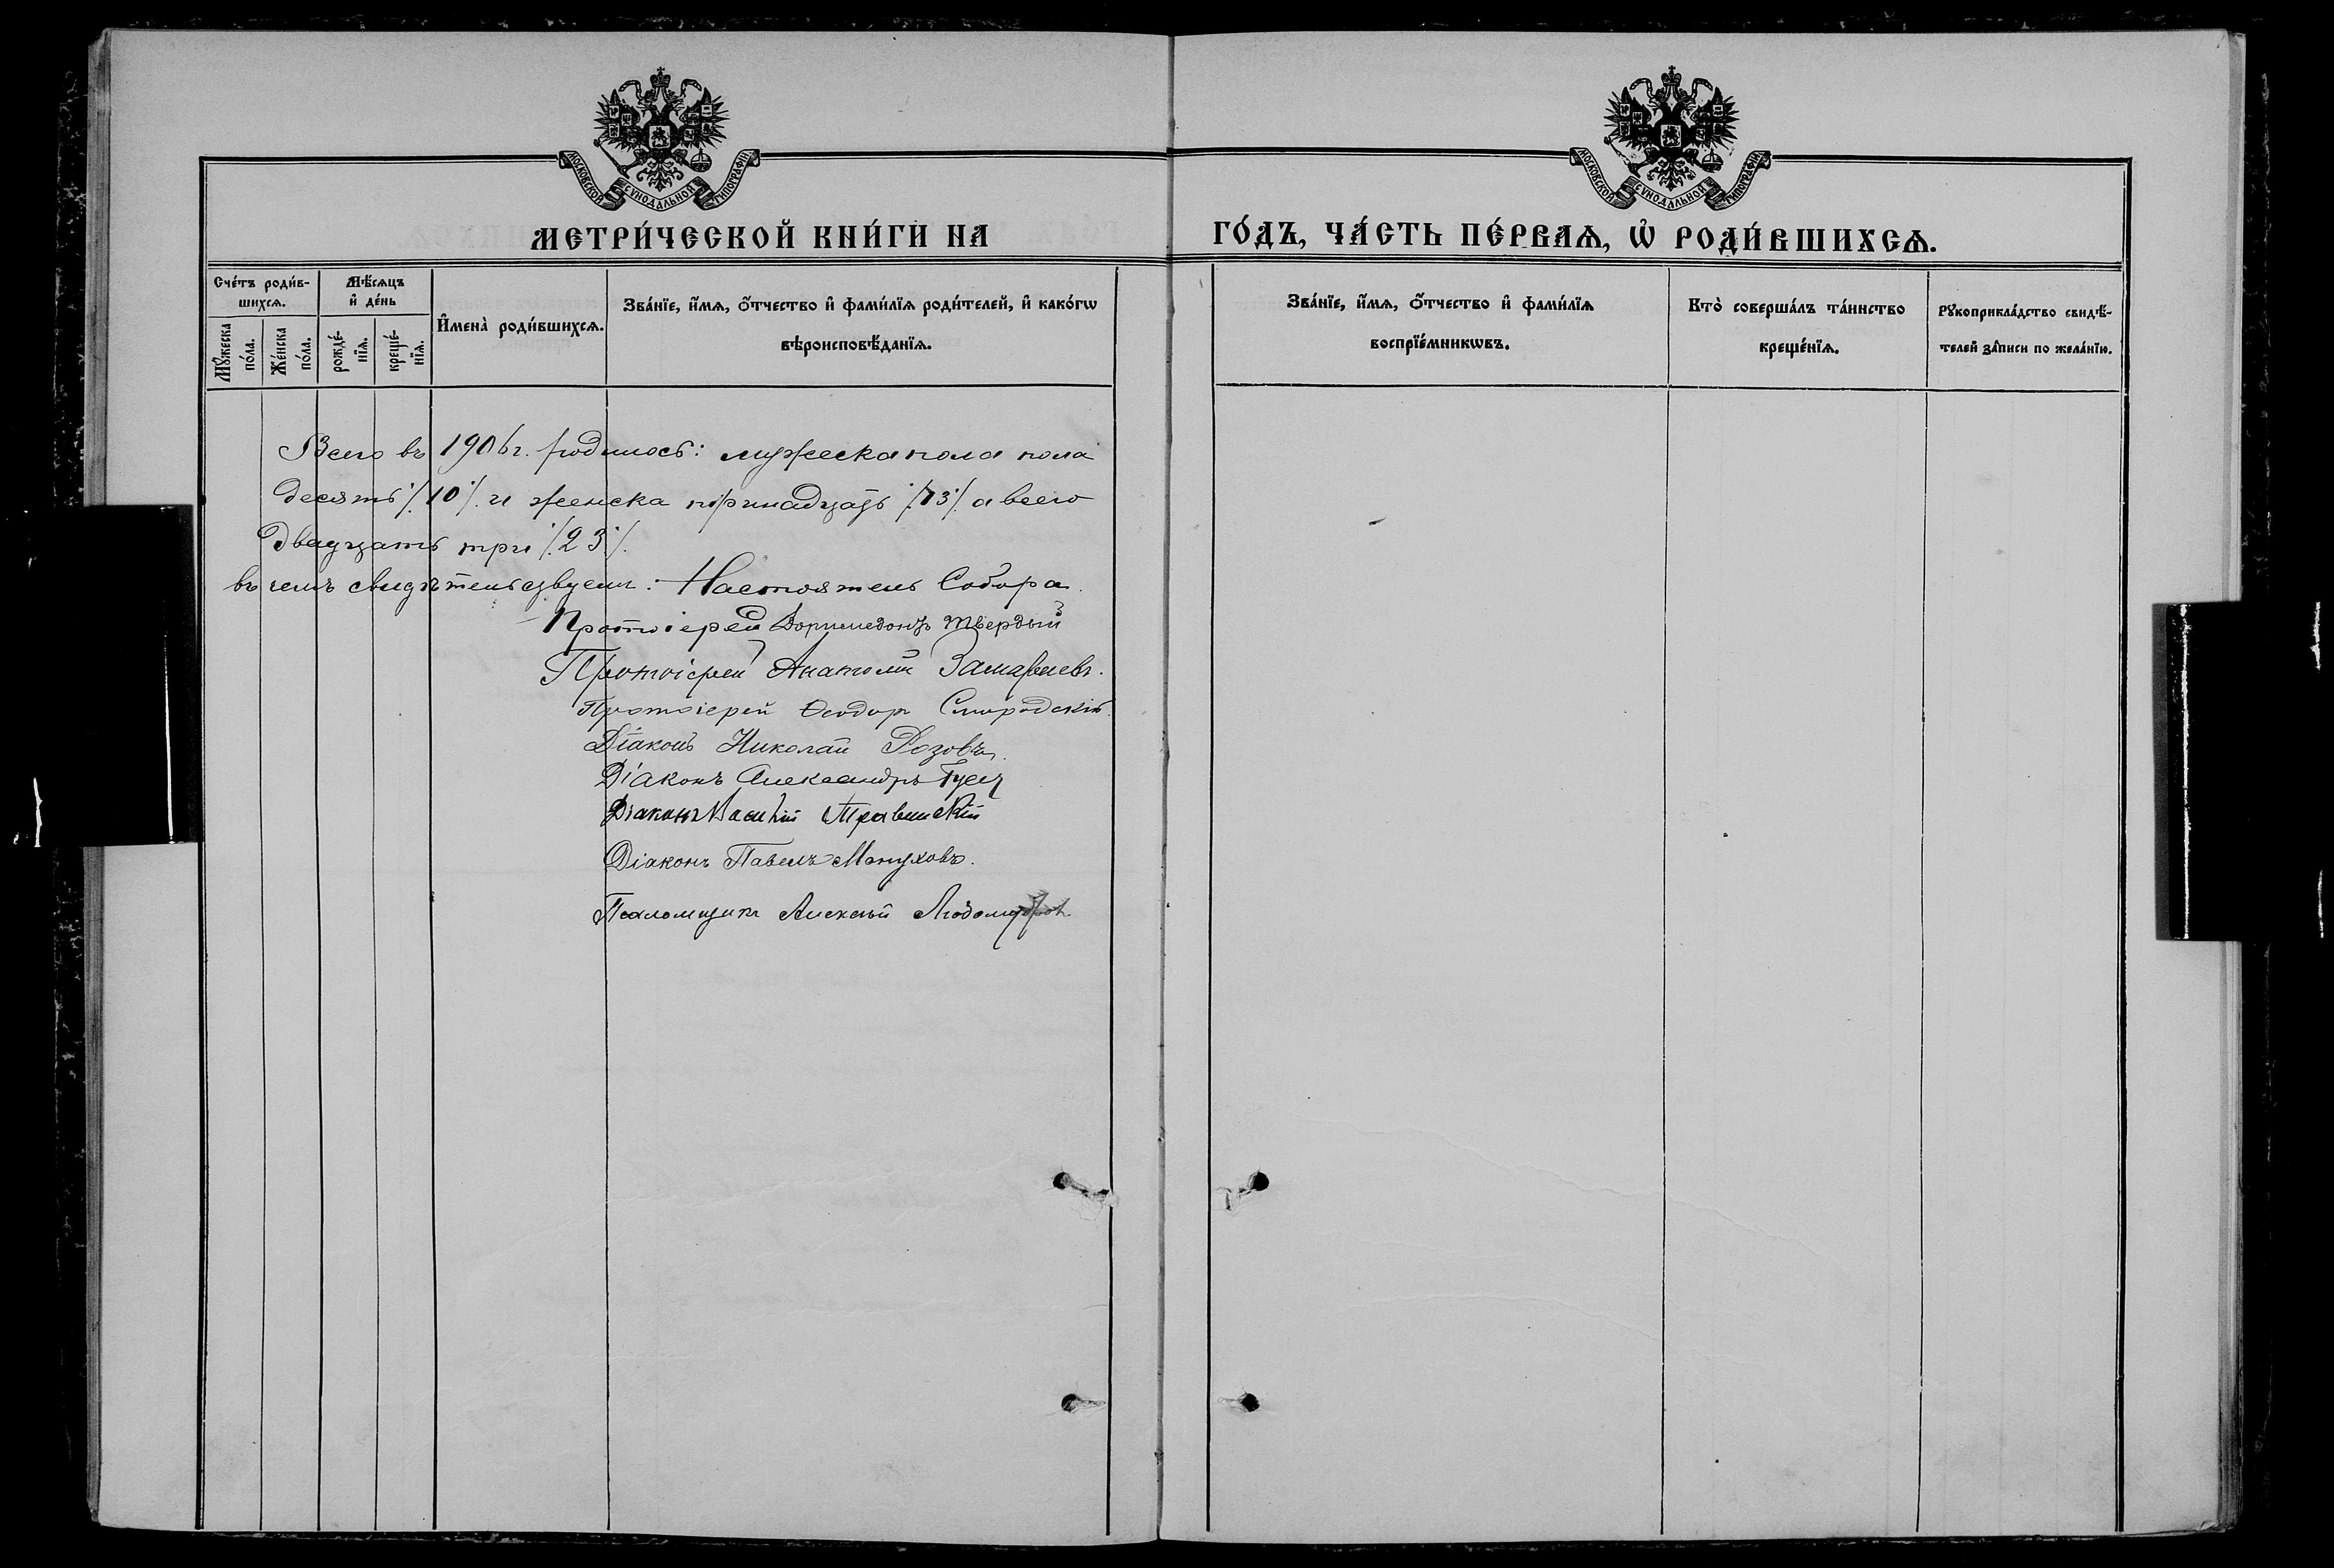 МОСКОВСКОЙ СѴНОДАЛЬНОЙ ТИПОГРАФІИ
МЕТРИ́ЧЕСКОЙ КНИ́ГИ НА
Сче́тъ роди́в-
шихсѧ.
Мѣ́сѧцъ
и҆ де́нь
Мꙋ́жеска
по́ла.
Же́нска
по́ла.
рожде́-
нїѧ.
креще́-
нїѧ.
И҆мена̀ роди́вшихсѧ.
Зва́нїе, и҆́мѧ, ѻ҆́тчество и҆ фами́лїѧ роди́телей, и҆ како́гѡ
вѣроисповѣ́данїѧ.
Всего въ 1906 г. родилось: мужеска пола пола
десять ·/. 10 ·/. и женска тринадцать ·/. 13 ·/. а всего
двадцать три ·/. 23 ·/.
въ чемъ свидѣтельствуемъ: Настоятель Собора
Протоіерей Доримедонтъ Твердый
Протоіерей Анатолій
Протоіерей Ѳеодоръ
Діаконъ Николай Розовъ.
Діаконъ Александръ
Діаконъ Василій Травинскій
Діаконъ Павелъ
Псаломщикъ Алексѣй Любомудров
МОСКОВСКОЙ СѴНОДАЛЬНОЙ ТИПОГРАФІИ
ГО́ДЪ, ЧА́СТЬ ПЕ́РВАѦ, Ѡ҆ РОДИ́ВШИХСѦ.
Зва́нїе, и҆́мѧ, ѻ҆́тчество и҆ фами́лїѧ
воспрїе́мникѡвъ.
Кто̀ соверша́лъ та́инство
креще́нїѧ.
Рꙋкоприкла́дство свидѣ́-
телей за́писи по жела́нїю.